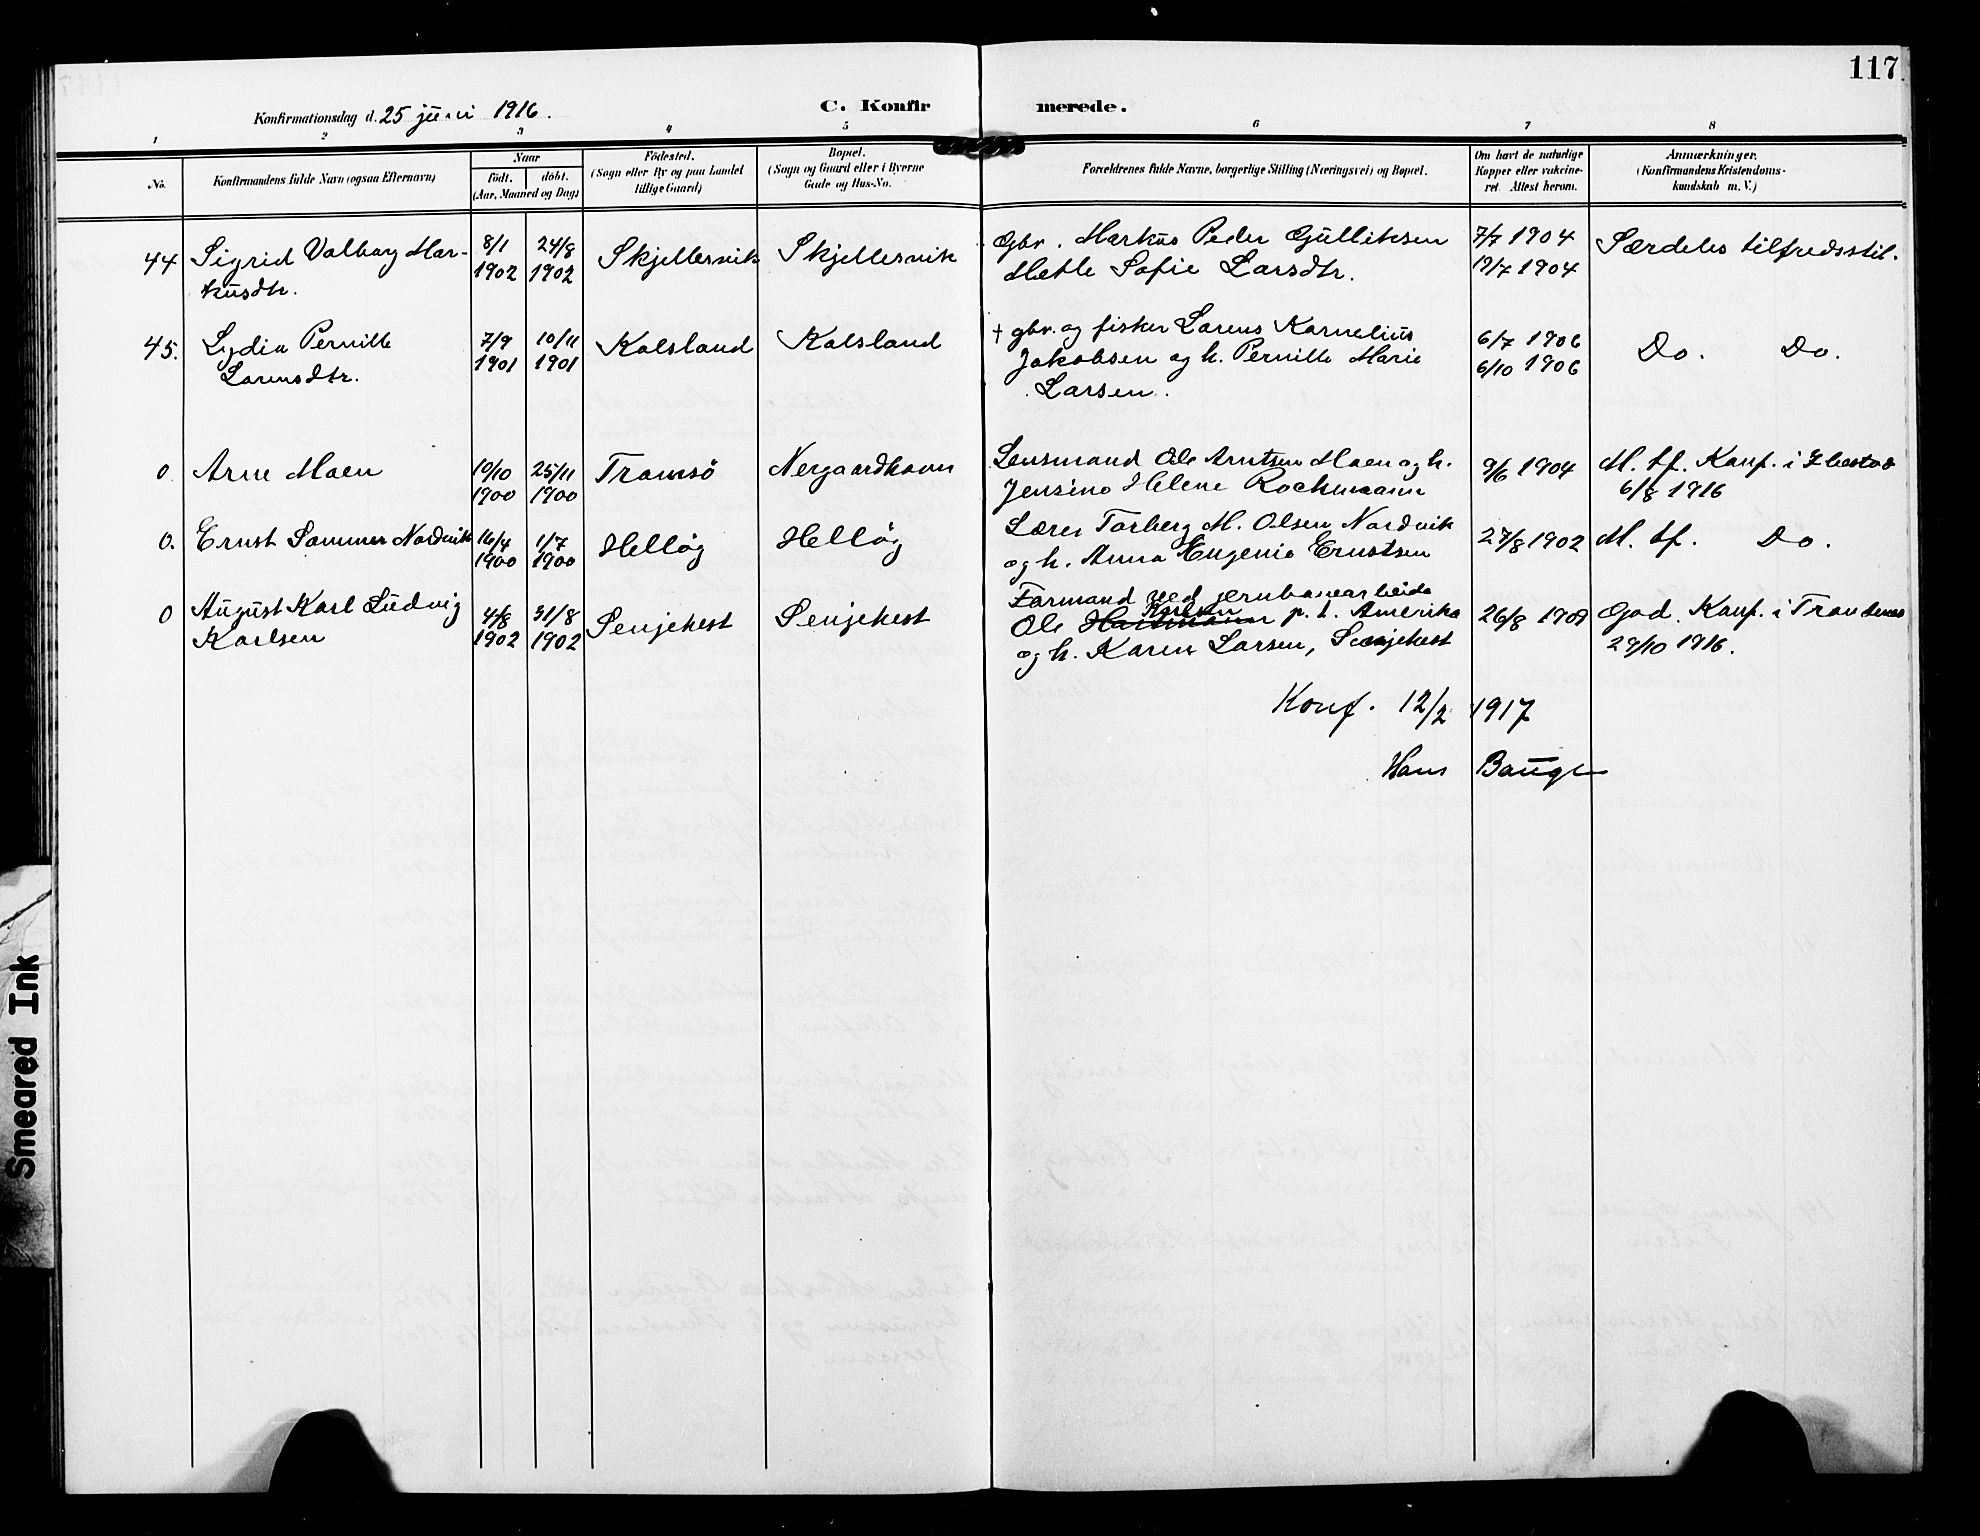 117
Konfirmationsdag d. 25 juni 1916.
C. Konfirmerede.
1 2 3 4 5 6 7 8
No.
Konfirmandens fulde Navn (ogsaa Efternavn)
Naar
født. døbt.
(Aar, Maaned og Dag)
Födested.
(Sogn eller By og paa Landet
tillige Gaard)
Bopæl.
(Sogn og Gaard eller i Byerne
Gade og Hus-No.
Forældrenes fulde Navne, borgerlige Stilling (Næringsvei) og Bopæl.
Om havt de naturlige
Kopper eller vakcine-
ret. Attest herom.
Anmærkninger.
(Konfirmandens Kristendoms-
kundskab m. V.)
44 Sigrid Valborg Mar- 8/1 24/8 Skjellesvik Skjellesvik Gbr. Markus Peder Gulliksen 7/7 1904 Særdeles tilfredsstil.
kusdtr. 1902 1902 Mette Sofie Larsdtr. 19/7 1904
45. Lydia Pernille 7/9 10/11 Kalsland Kalsland + gbr. og fisker Lorens Kornelius 6/7 1906 Do. Do.
Lorensdtr. 1901 1901 Jakobsen og h. Pernille Marie 6/10 1906
Larsen.
0 Arne Moen 10/10 25/11 Tromsö Nergaardhavn Lensmand Ole Arntsen Moen og h. 9/6 1904 M. tf. Konf. i Ibestad
1900 1900 Jensine Helene Rochmann 6/8 1916
0. Ernst Sommer Nordvik 16/4 1/7 Helløy Helløy Lærer Torberg M. Olsen Nordvik 27/8 1902 M. tf. Do.
1900 1900 og h. Anna Eugenie Ernstsen
0 August Karl Ludvig 4/8 31/8 Senjehest Senjehest Formand ved jernbanearbeide
Karlsen 1902 1902 Ole Karlsen p. t. Amerika 26/8 1909 God. Konf. i Trondenes
og h. Karen Larsen, Senjehest 29/10 1916.
Konf. 12/2 1917
Hans Bauge
Smeared Ink